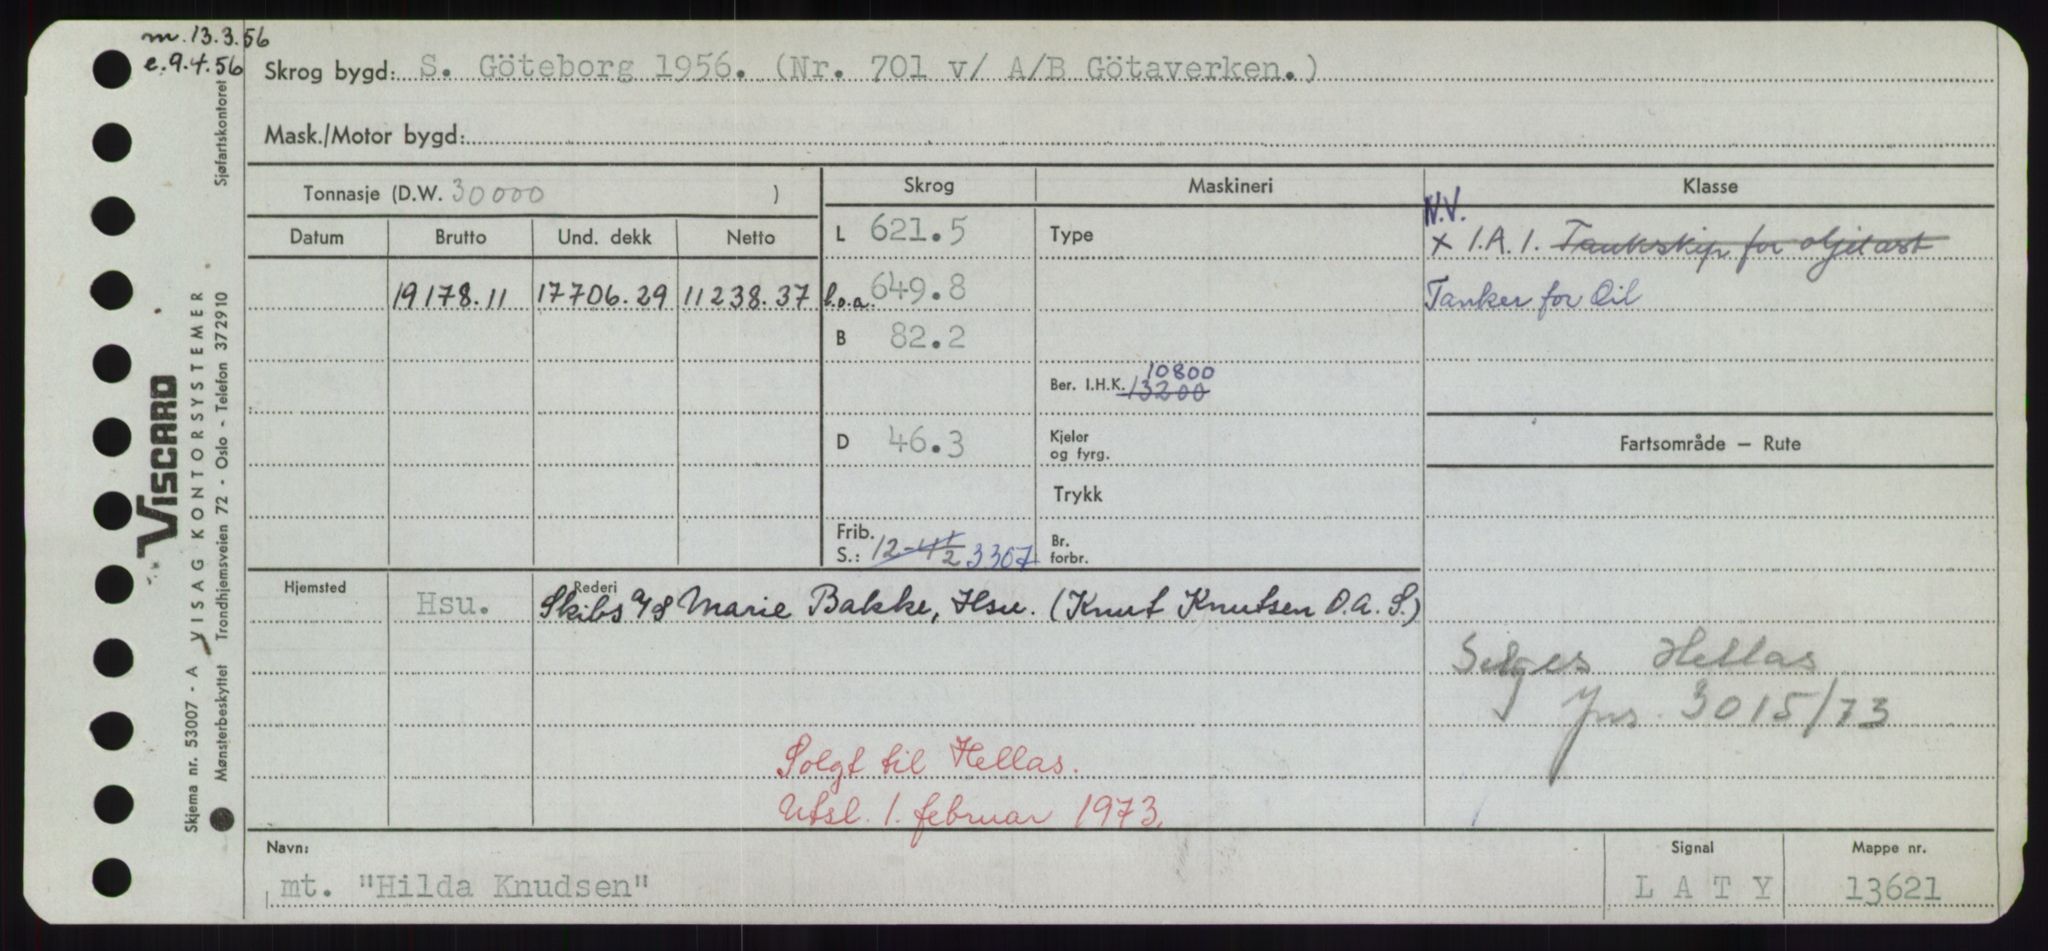 m. 13.3.56
e. 9.4.56
Skrog bygd: S. Göteborg 1956. (Nr. 701 v/ A/B Götaverken.)
Mask./Motor bygd:
Tonnasje (D.W. 30000 )
Skrog
Maskineri
Klasse
Datum Brutto Und. dekk Netto
L 621.5
Type
N.V.
x 1.A.1. Tankskip for oljelast
19178.11 17706.29 11238.37
l.o.a. 649.8
Tanker for Oil
B 82.2
10800
Ber. I.H.K. 13200
D 46.3
Kjeler
og fyrg.
Fartsområde – Rute
Trykk
Frib.
S.: 12-4 1/2 3307
Br.
forbr.
Hjemsted
Hsu.
Rederi
Skibs A/S Marie Bakke, Hsu. (Knut Knutsen O.A.S.)
Selges Hellas
Jnr. 3015/73
Solgt til Hellas.
Utsl. 1. februar 1973.
Navn:
mt. "Hilda Knudsen"
Signal
L A T Y
Mappe nr.
13621
VISCARD
Skjema nr. 53007 - A VISAG KONTORSYSTEMER
Mønsterbeskyttet Trondhjemsveien 72 - Oslo - Telefon 372910 Sjøfartskontoret